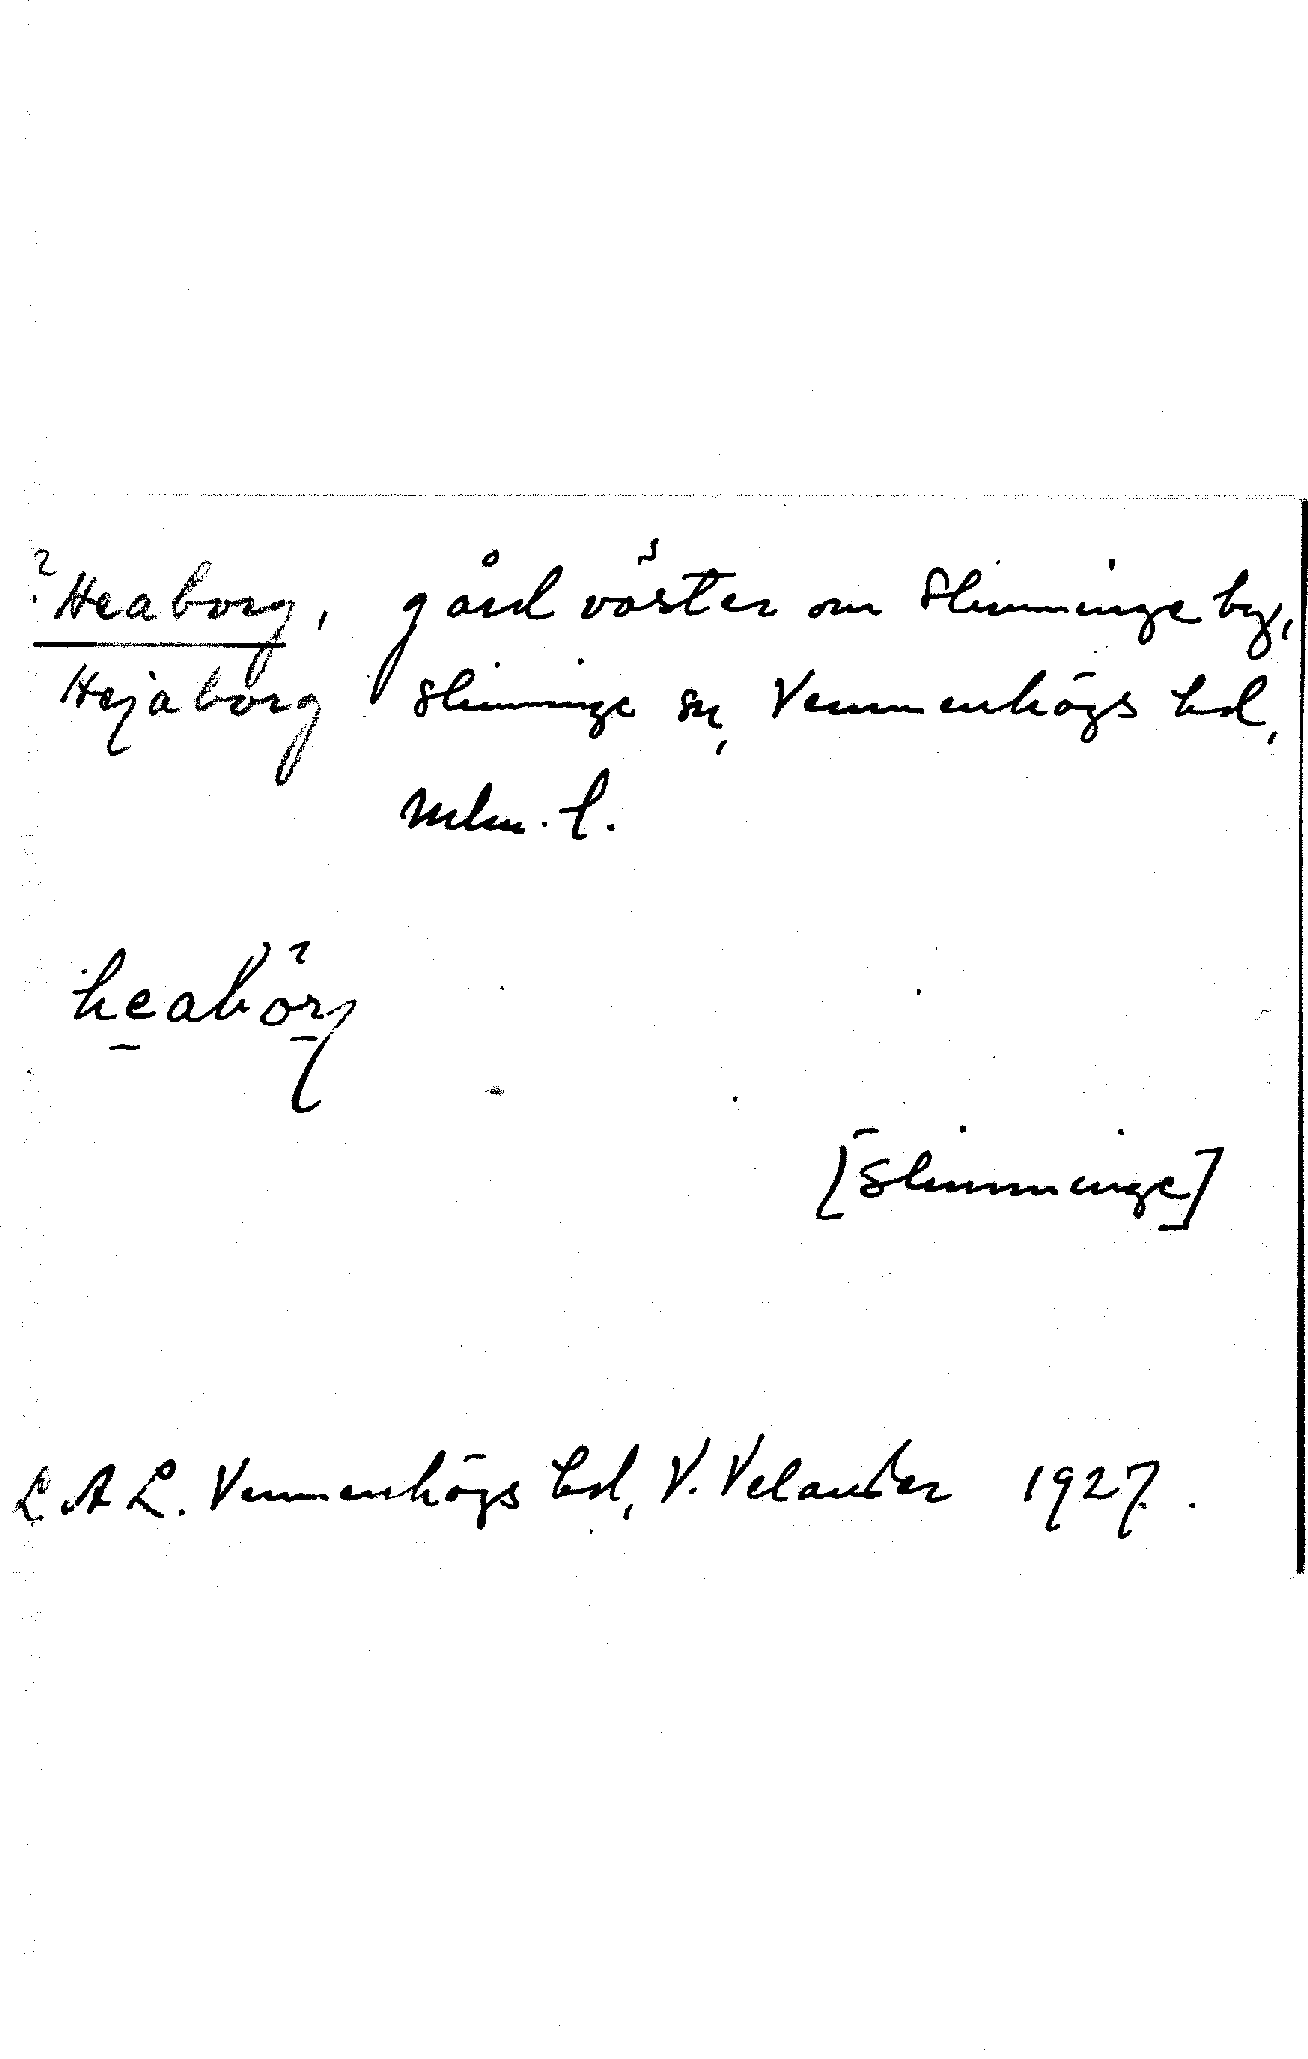 ? Heaborg, gård väster om Slimminge by,
Hejaborg Slimminge sn, Vemmenhögs hd,
Mlm. l.
heabörj
[Slimminge]
L A L. Vemmenhögs hd, V. Velander 1927.